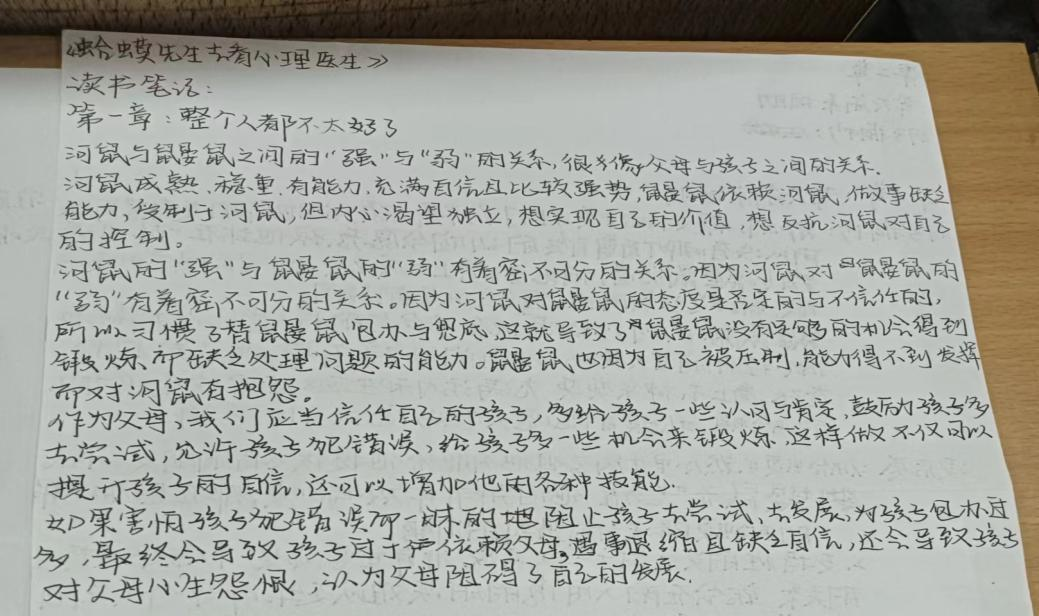 《蛤蟆先生去看心理医生》
读书笔记：
第一章：整个人都不太好了
河鼠与鼹鼠之间的“强”与“弱”的关系，很多像父母与孩子之间的关系．
河鼠成熟、稳重、有能力、充满自信且比较强势，鼹鼠依赖河鼠，做事缺乏
能力，受制于河鼠，但内心渴望独立，想实现自己的价值，想反抗河鼠对自己
的控制。
河鼠的“强”与鼹鼠的“弱”有着密不可分的关系。因为河鼠对鼹鼠的
“弱”有着密不可分的关系。因为河鼠对鼹鼠的态度是否定的与不信任的，
所以习惯了替鼹鼠包办与兜底，这就导致了鼹鼠没有足够的机会得到
锻炼，而缺乏处理问题的能力。鼹鼠也因为自己被压制，能力得不到发挥
而对河鼠有抱怨。
作为父母，我们应当信任自己的孩子，多给孩子一些认同与肯定，鼓励孩子多
去尝试，允许孩子犯错误，给孩子多一些机会来锻炼．这样做不仅可以
提升孩子的自信，还可以增加他的各种技能．
如果害怕孩子犯错误而一味的地阻止孩子去尝试、去发展，为孩子包办过
多，最终会导致孩子过于依赖父母。遇事退缩且缺乏自信，还会导致孩子
对父母心生怨恨，认为父母阻碍了自己的发展．